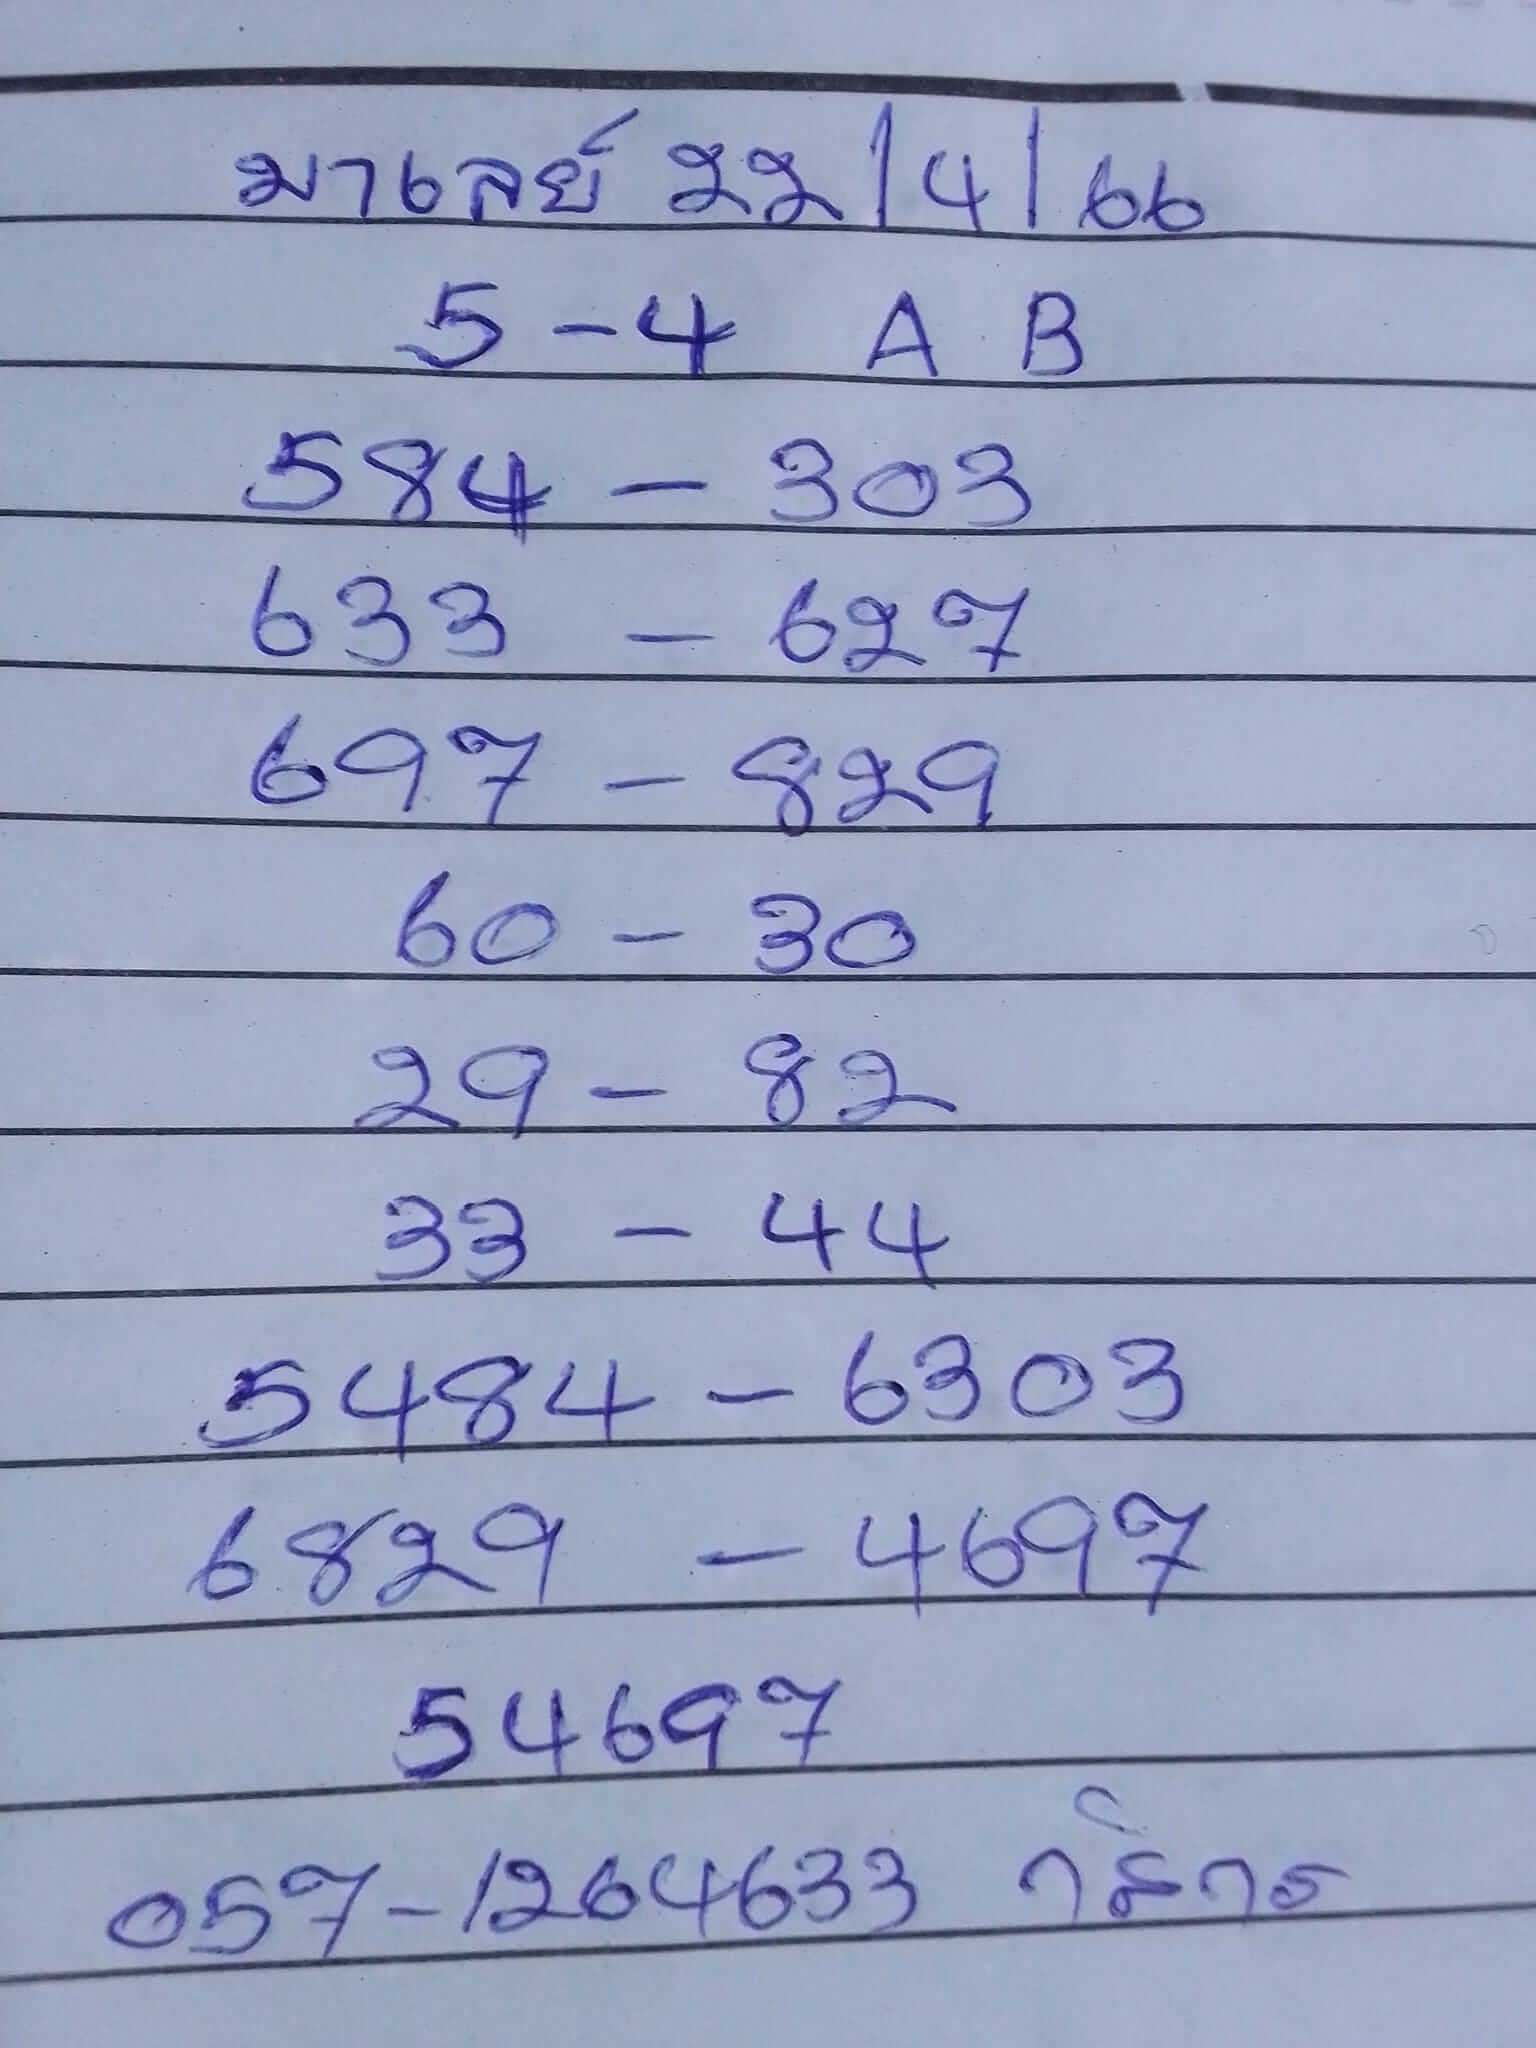 มาเลย์ 22/4/66
5-4 A B
584 - 303
633 - 627
697 - 829
60 - 30
29 - 82
33 - 44
5484 - 6303
6829 - 4697
54697
057-1264633